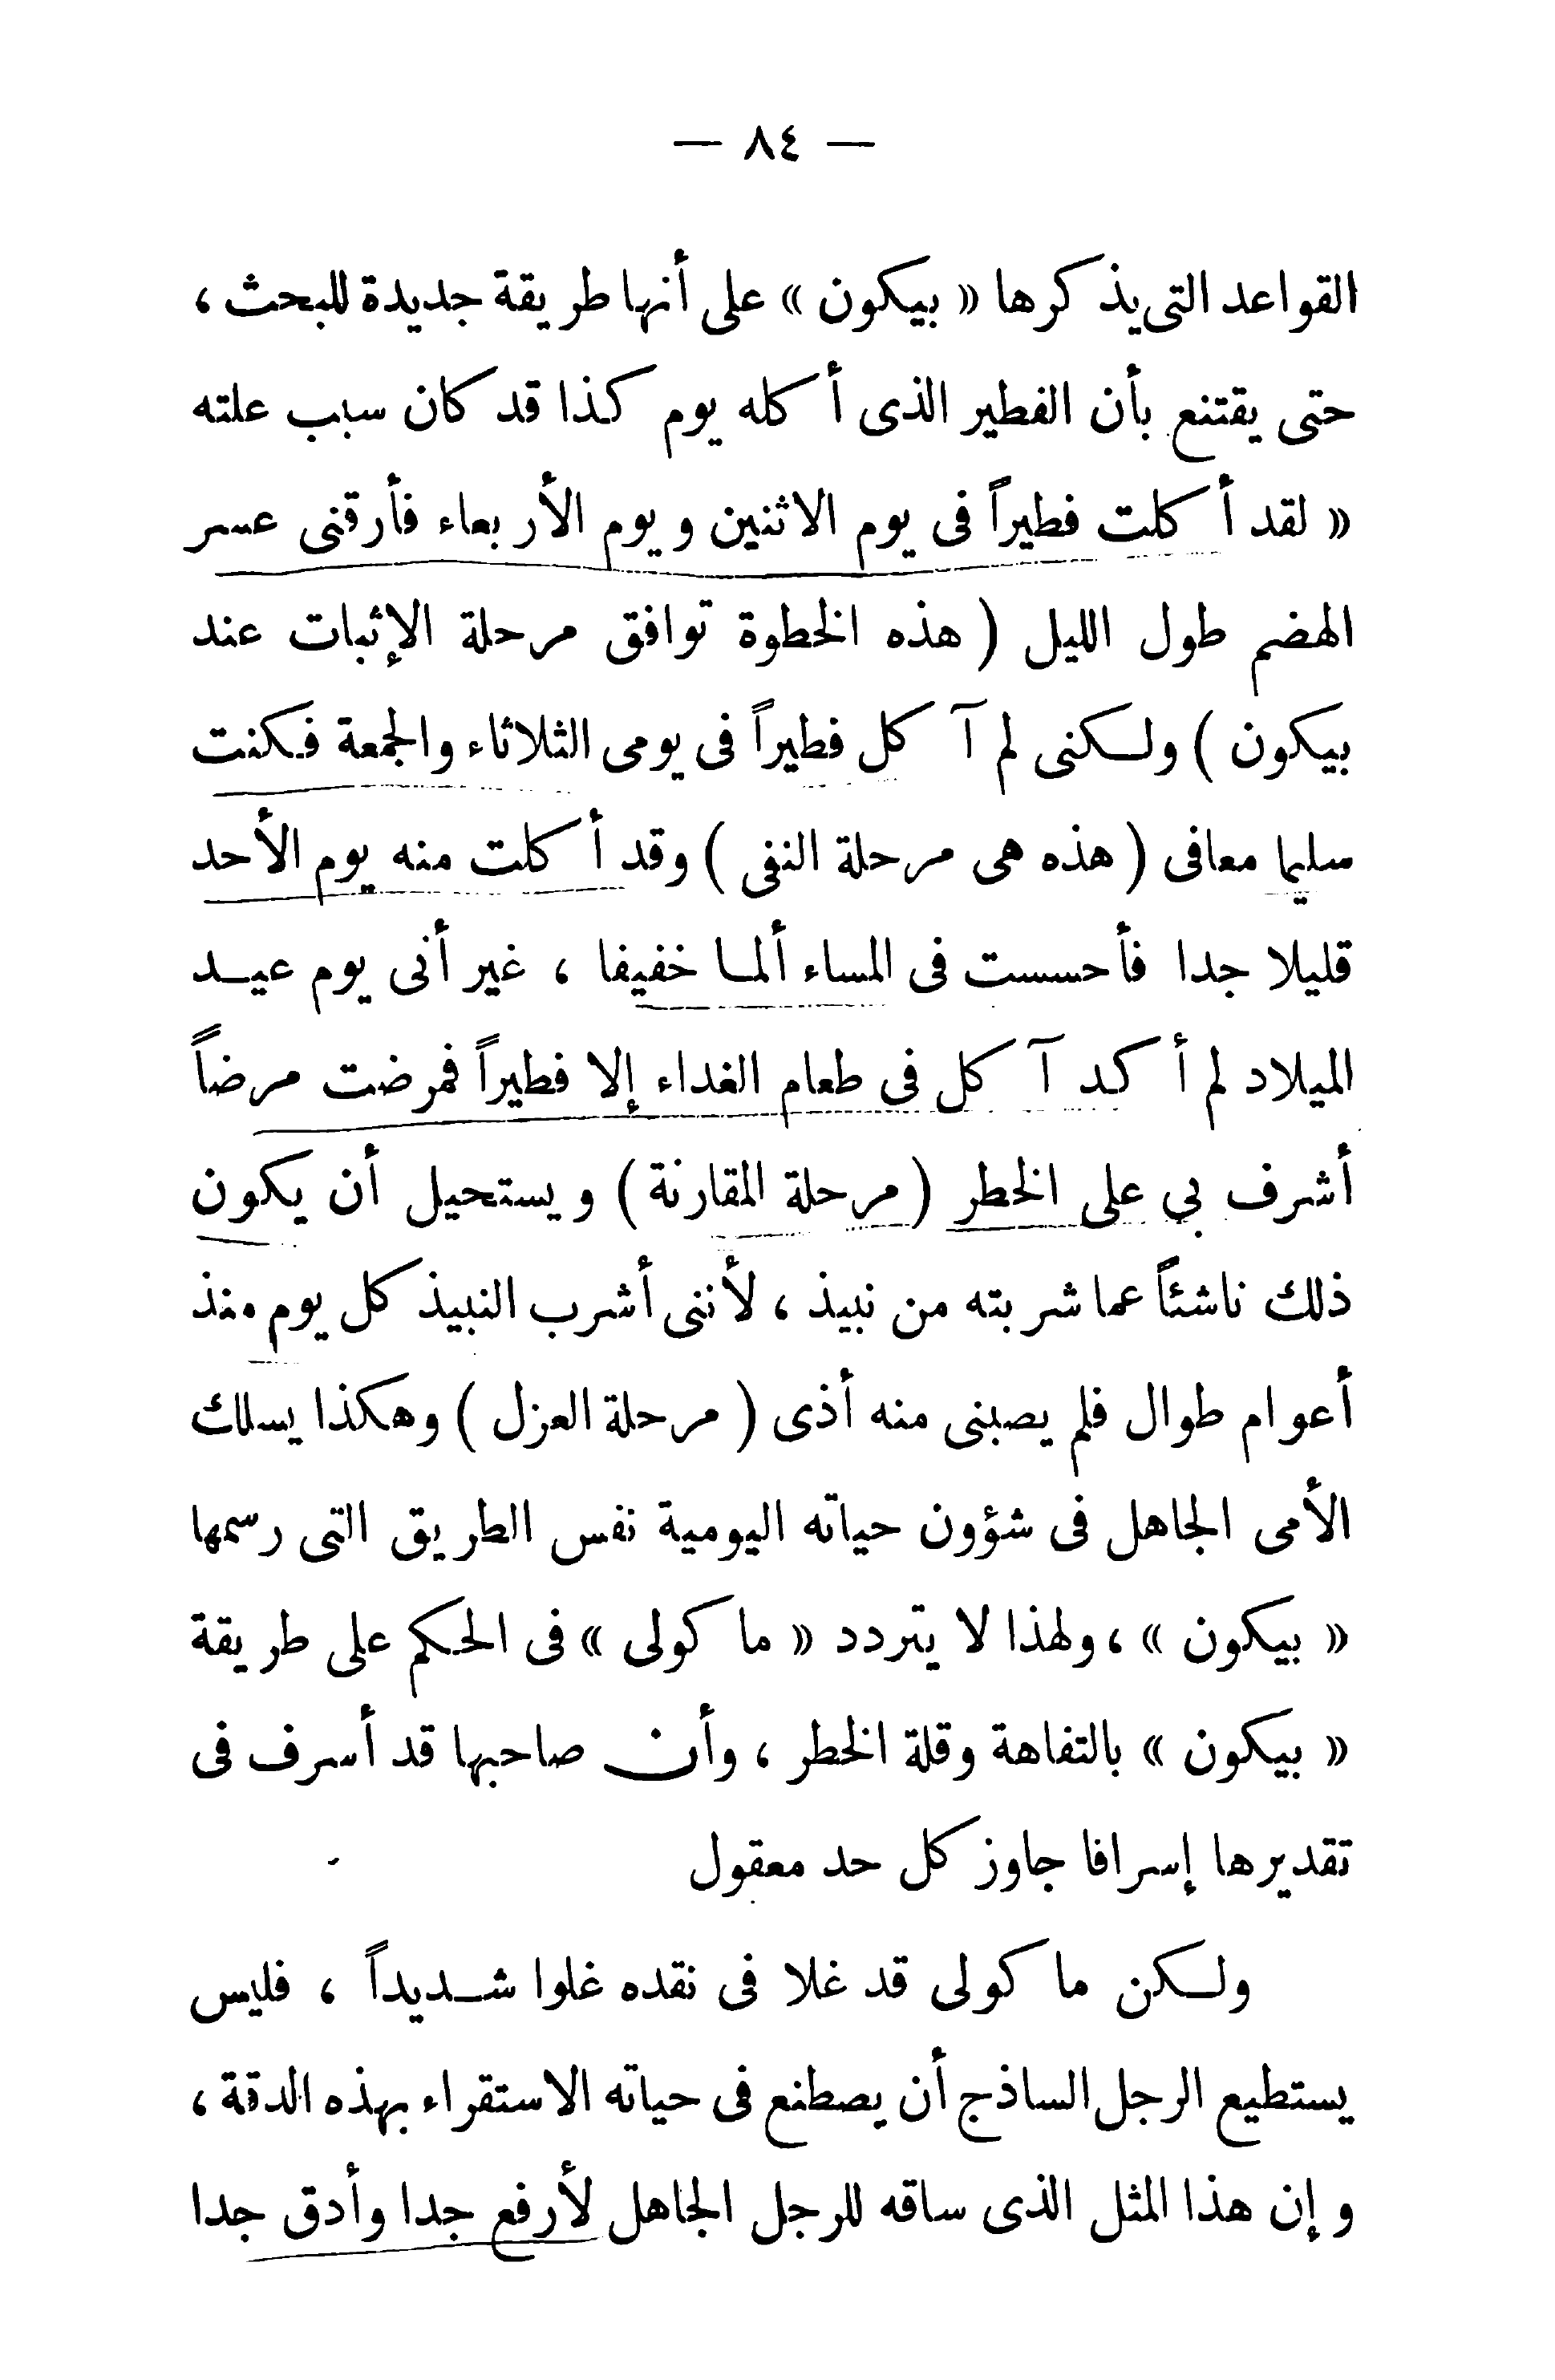 — ٨٤ —
القواعد التى يذكرها « بيكون » على أنها طريقة جديدة للبحث ،
حتى يقتنع بأن الفطير الذى أكله يوم كذا قد كان سبب علته
« لقد أكلت فطيراً فى يوم الاثنين ويوم الأربعاء فأرقنى عسر
الهضم طول الليل ( هذه الخطوة توافق مرحلة الإثبات عند
بيكون ) ولكنى لم آكل فطيراً فى يومى الثلاثاء والجمعة فكنت
سليما معافى ( هذه هى مرحلة النفى ) وقد أكلت منه يوم الأحد
قليلا جدا فأحسست فى المساء ألما خفيفا ، غير أنى يوم عيد
الميلاد لم أكد آكل فى طعام الغداء إلا فطيراً فمرضت مرضاً
أشرف بى على الخطر ( مرحلة المقارنة ) ويستحيل أن يكون
ذلك ناشئاً عما شربته من نبيذ ، لأننى أشرب النبيذ كل يوم منذ
أعوام طوال فلم يصبنى منه أذى ( مرحلة العزل ) وهكذا يسلك
الأمى الجاهل فى شؤون حياته اليومية نفس الطريق التى رسمها
« بيكون » ، ولهذا لا يتردد « ماكولى » فى الحكم على طريقة
« بيكون » بالتفاهة وقلة الخطر ، وأن صاحبها قد أسرف فى
تقديرها إسرافا جاوز كل حد معقول
ولكن ماكولى قد غلا فى نقده غلوا شديداً ، فليس
يستطيع الرجل الساذج أن يصطنع فى حياته الاستقراء بهذه الدقة ،
وإن هذا المثل الذى ساقه للرجل الجاهل لأرفع جدا وأدق جدا